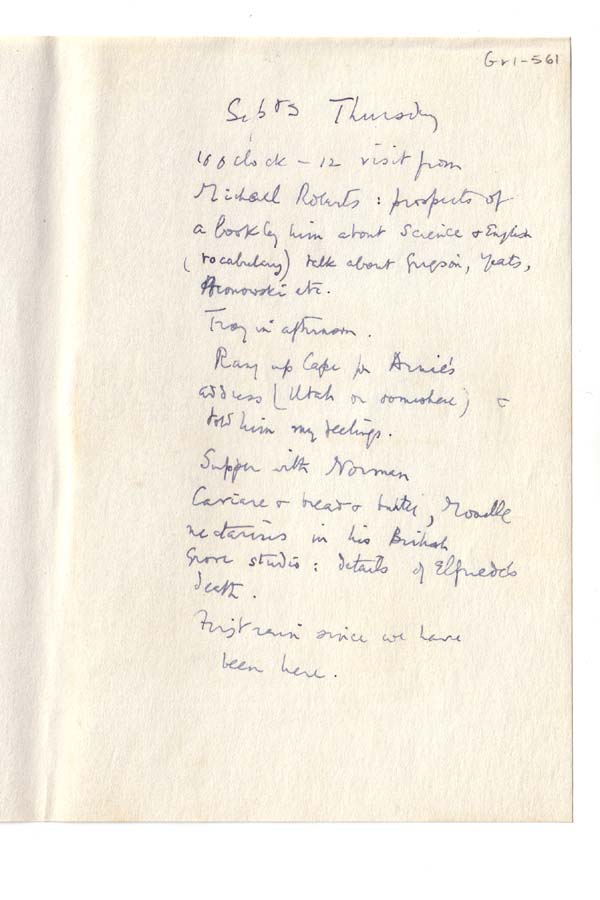 Gr1-561
Thursday
10 o'clock – 12 visit from
Michael Roberts : prospects of
a book by him about Science & English
(vocabulary) talk about Grigson, Yeats,
Bronowski etc.
Troy in afternoon.
Rang up Cape for Arnie's
address (Utah or somewhere) &
told him my feelings.
Supper with Norman
Caviare & bread & butter, Moselle
nectarines in his British
Grove studio : details of Elfrieda's
death.
First rain since we have
been here.